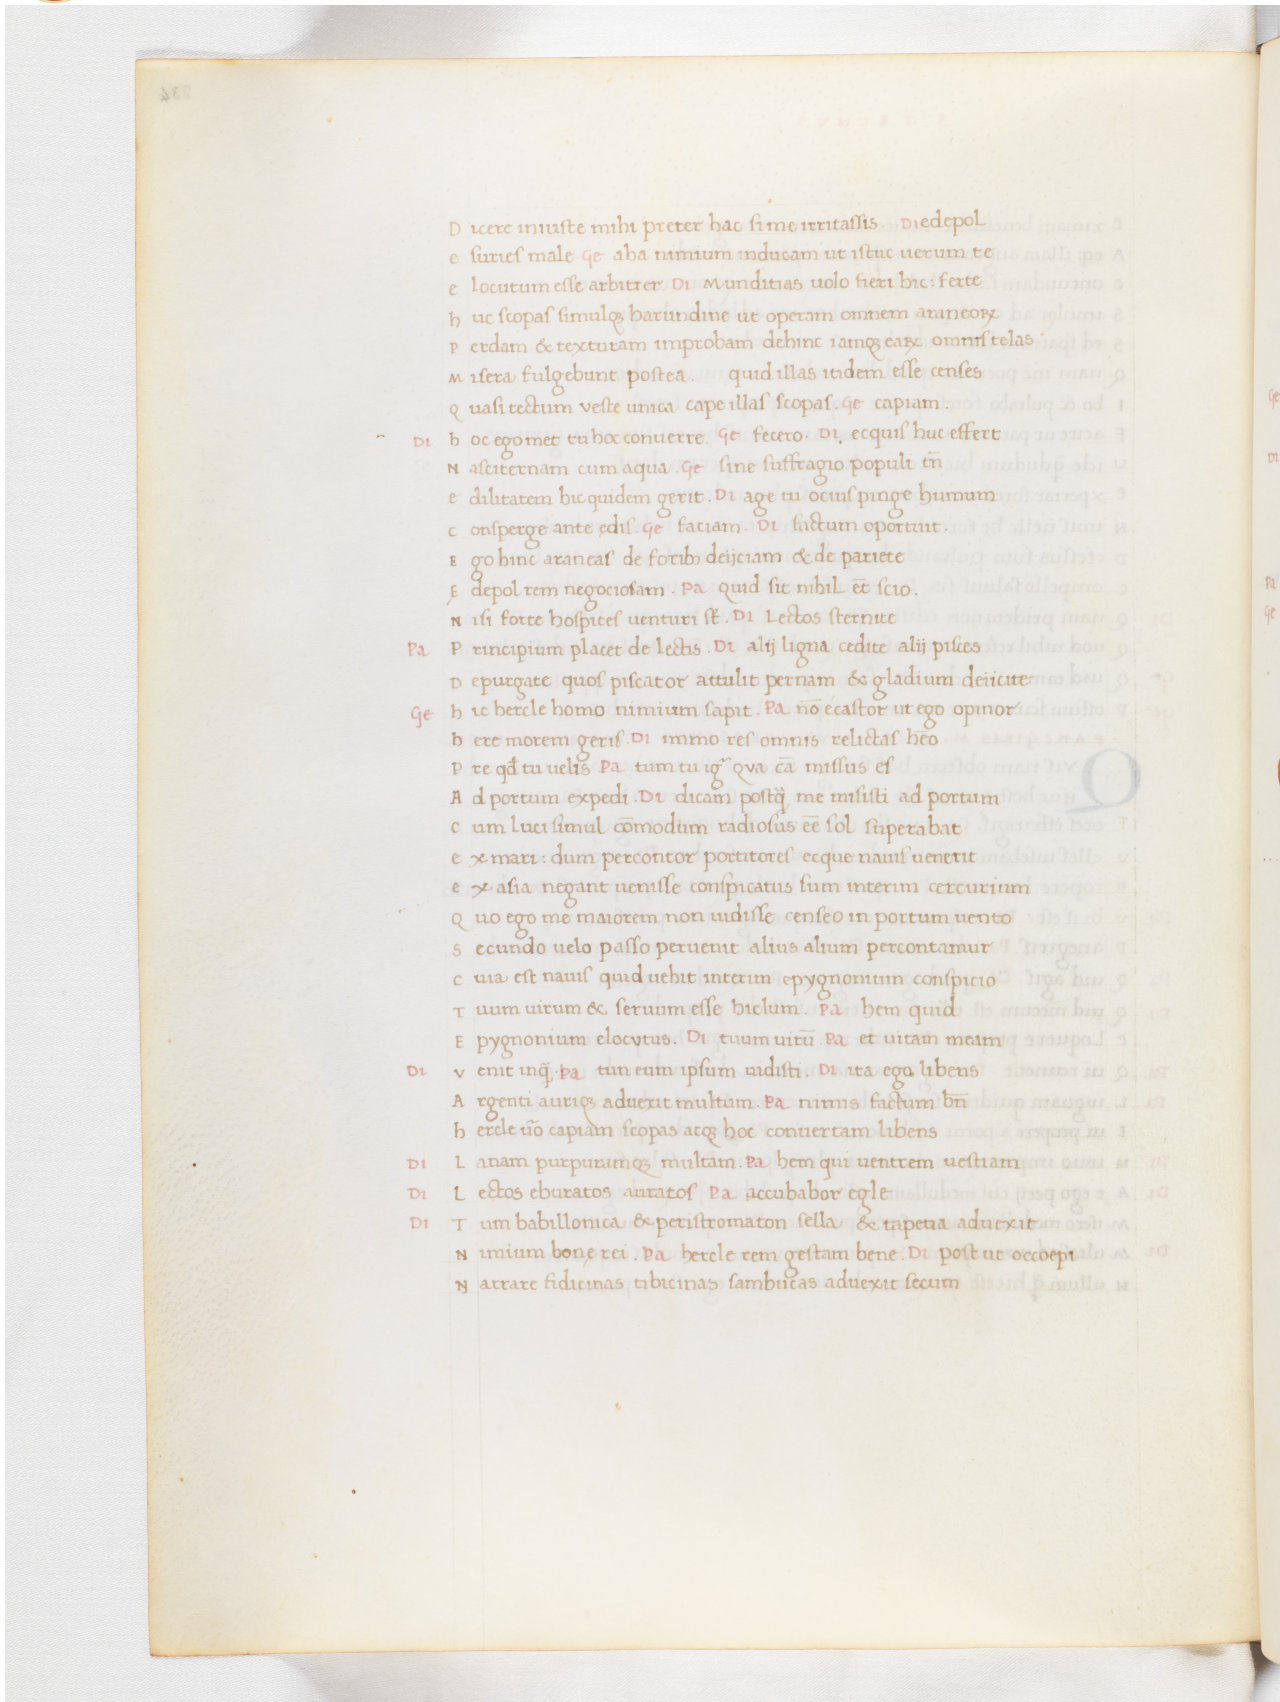 D icere iniuste mihi preter hac si me irritassis. DI edepol
e suries male Ge aha nimium inducam ut istuc uerum te
e locutum esse arbitrer DI Munditias uolo fieri hic: ferte
h uc scopas simulqꝫ harundine ut operam omnem araneoꝝ
P erdam & texturam improbam dehinc iamqꝫ eaꝝ omnis telas
M isera fulgebunt postea. quid illas itidem esse censes
Q uasi tectum veste unica cape illas scopas. Ge capiam.
DI h oc egomet tu hoc conuerre. Ge fecero. DI. ecquis huc effert
N asciternam cum aqua. Ge sine suffragio populi tn̄
e dilitatem hic quidem gerit. DI age tu ocius pinge humum
C onsperge ante ędis. Ge faciam. DI factum oportuit.
E go hinc araneas de foribꝫ deijciam & de pariete
E depol rem negociosam. Pa quid sit nihil et̄ scio.
N isi forte hospites uenturi st̄. DI Lectos sternite
Pa P rincipium placet de lectis. DI alij ligna cedite alij pisces
D epurgate quos piscator attulit pernam & gladium deiicite
Ge h ic hercle homo nimium sapit. Pa nō ecastor ut ego opinor
h ere morem geris. DI immo res omnis relictas hēo
P re qđ tu uelis Pa tum tu igr̄ qva cā missus es
A d portum expedi. DI dicam postq̄ me misisti ad portum
C um luci simul cōmodum radiosus eē sol superabat
e x mari: dum percontor portitores ecque nauis uenerit
e x asia negant uenisse conspicatus sum interim cercurium
Q uo ego me maiorem non uidisse censeo in portum uento
S ecundo uelo passo peruenit alius alium percontamur
C uia est nauis quid uehit interim epygnomium conspicio
T uum uirum & seruum esse hiclum. Pa hem quid
E pygnonium elocvtus. DI tuum uirū Pa et uitam meam
DI V enit inq̄. Pa tun eum ipsum uidisti. DI ita ego libens
A rgenti auriqꝫ aduexit multum. Pa nimis factum bn̄
h ercle uo᷃ capiam scopas atqꝫ hoc conuertam libens
DI L anam purpuramqꝫ multam. Pa hem qui uentrem uestiam
DI L ectos eburatos auratos Pa accubabor egle
DI T um babillonica & peristromaton sella & tapetia aduexit
N imium bonę rei. Pa hercle rem gestam bene. DI post ut occoepi
N arrare fidicinas tibicinas sambucas aduexit secum